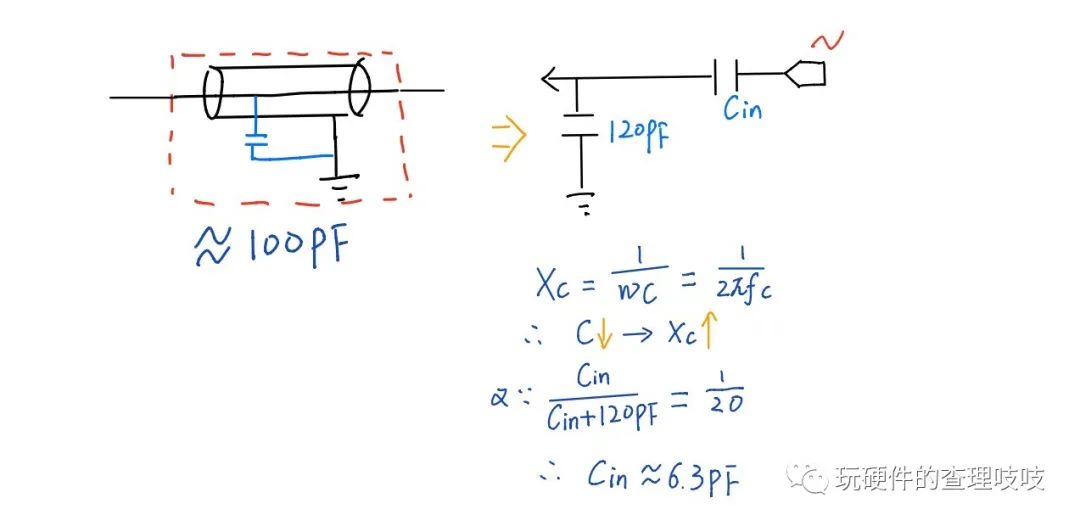 ~
Cin
120PF
⇒
≈100PF
Xc = 1/wC = 1/2πfc
∴ C↓ → Xc↑
又∵ Cin/Cin+120PF = 1/20
∴ Cin≈6.3PF
玩硬件的查理吱吱